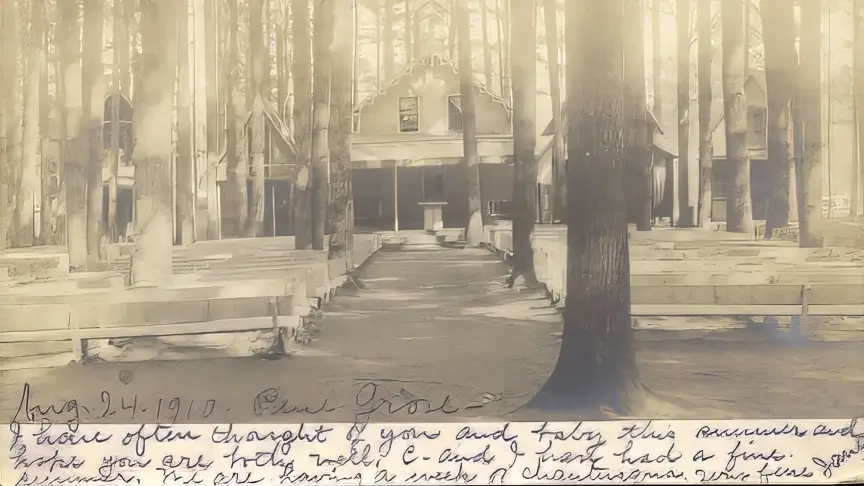 Aug. 24. 1910. Pine Grove
I have often thought of you and baby this summer and
hope you are both well. C- and I have had a fine
summer. We are having a week of Chautauqua. Very fine